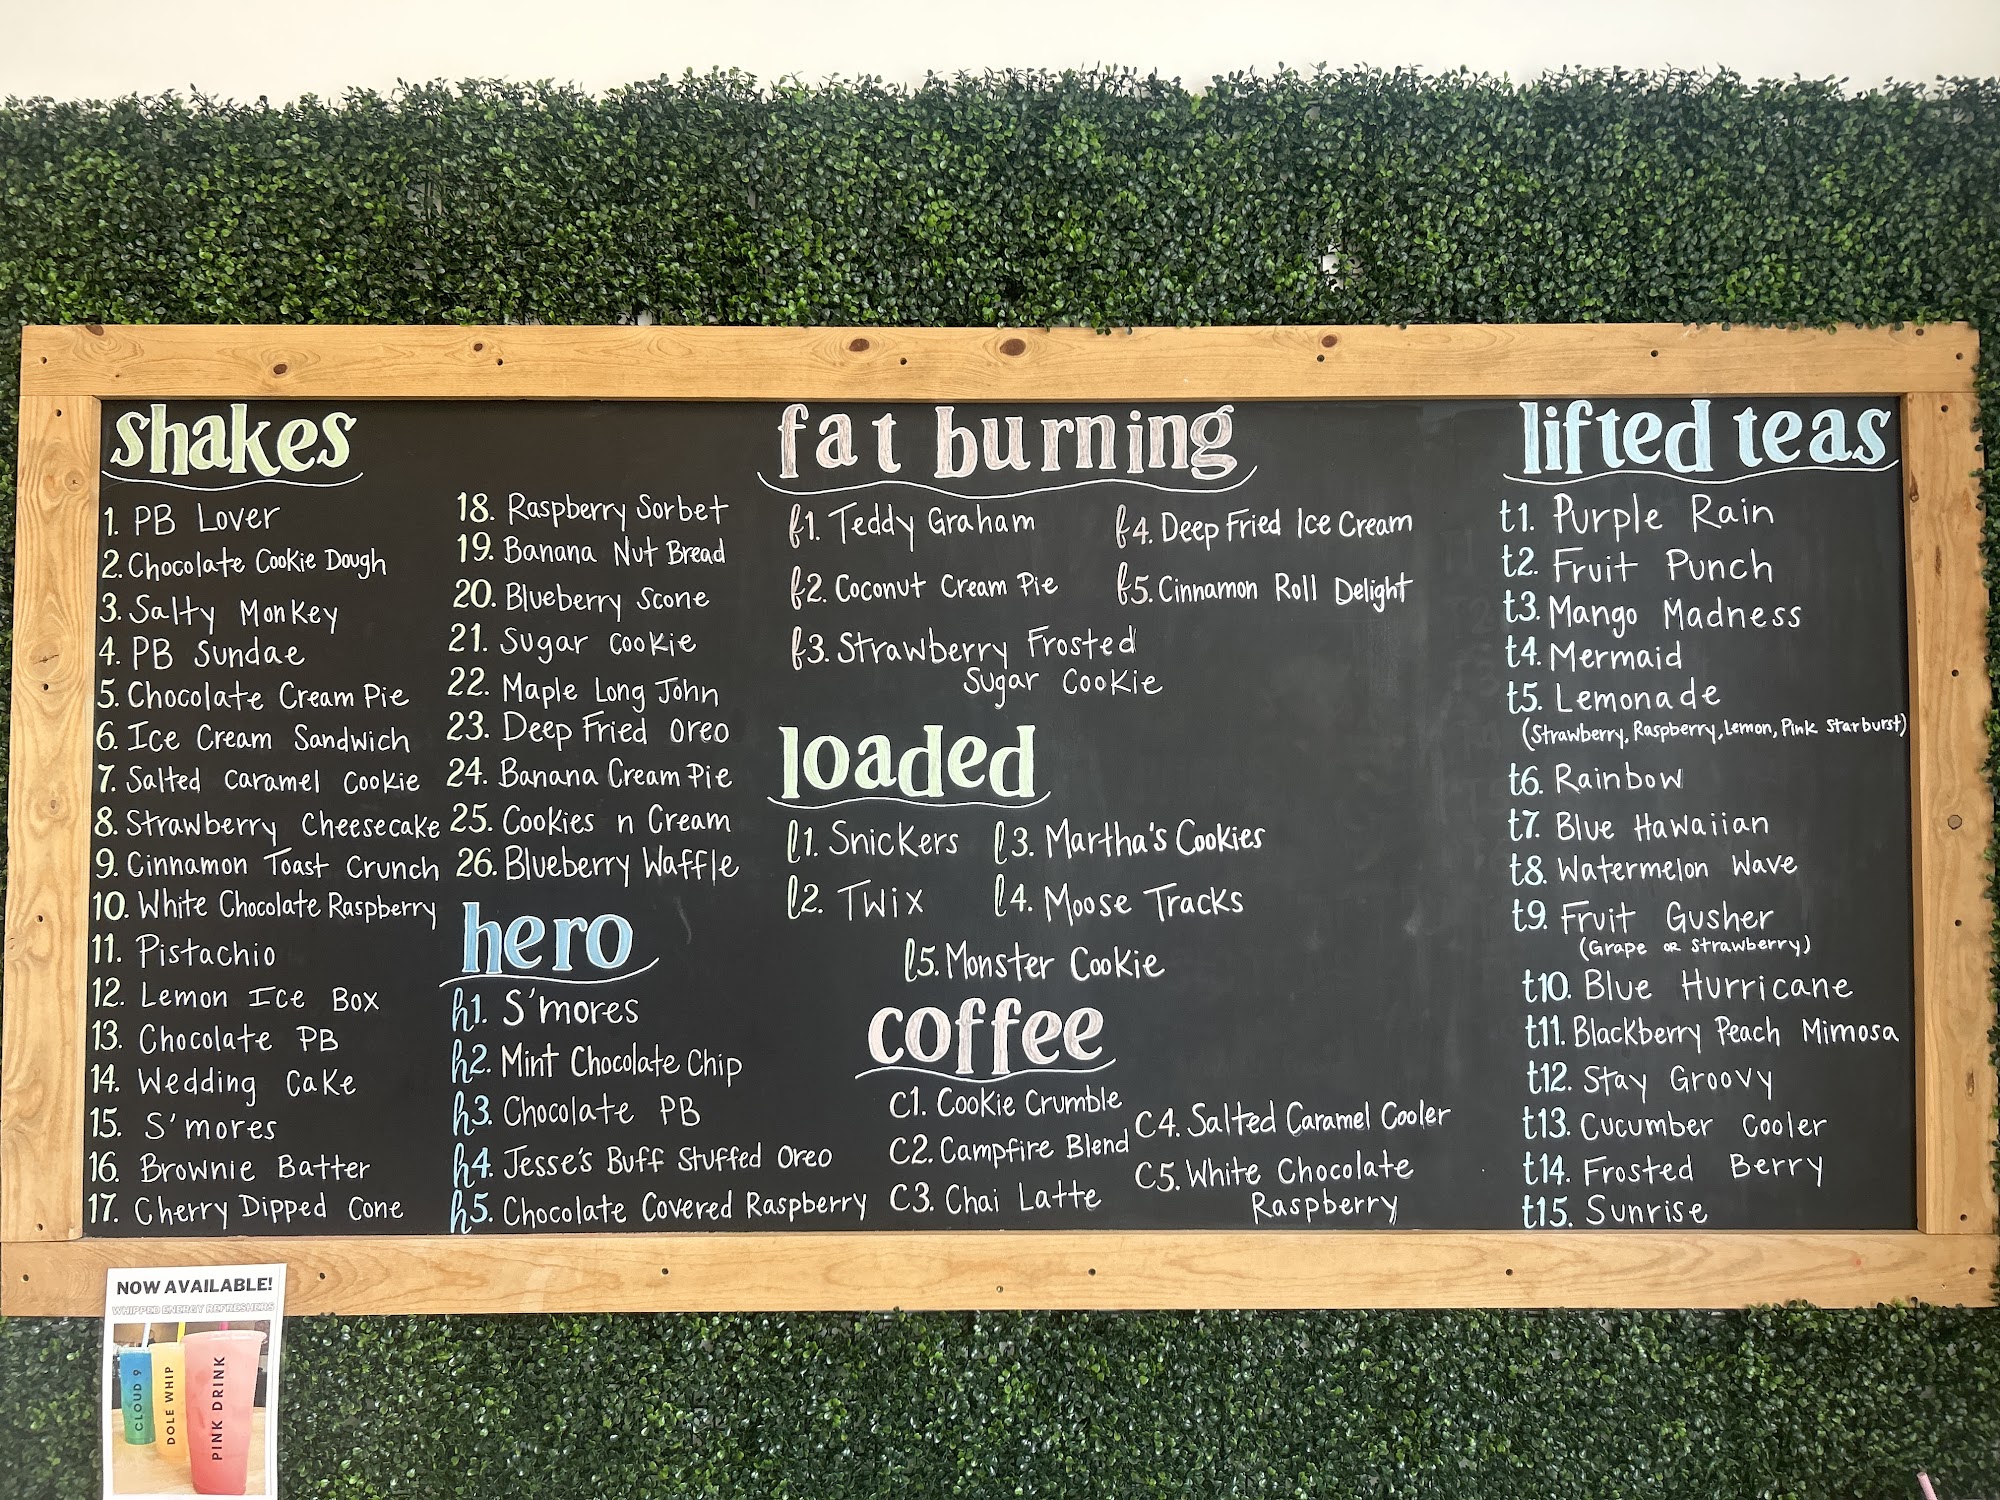 shakes
1. PB Lover
2. Chocolate Cookie Dough
3. Salty Monkey
4. PB Sundae
5. Chocolate Cream Pie
6. Ice Cream Sandwich
7. Salted Caramel Cookie
8. Strawberry Cheesecake
9. Cinnamon Toast Crunch
10. White Chocolate Raspberry
11. Pistachio
12. Lemon Ice Box
13. Chocolate PB
14. Wedding Cake
15. S'mores
16. Brownie Batter
17. Cherry Dipped Cone
18. Raspberry Sorbet
19. Banana Nut Bread
20. Blueberry Scone
21. Sugar Cookie
22. Maple Long John
23. Deep Fried Oreo
24. Banana Cream Pie
25. Cookies n Cream
26. Blueberry Waffle
hero
h1. S'mores
h2. Mint Chocolate Chip
h3. Chocolate PB
h4. Jesse's Buff Stuffed Oreo
h5. Chocolate Covered Raspberry
fat burning
f1. Teddy Graham
f2. Coconut Cream Pie
f3. Strawberry Frosted
Sugar Cookie
f4. Deep Fried Ice Cream
f5. Cinnamon Roll Delight
loaded
l1. Snickers
l2. Twix
l3. Martha's Cookies
l4. Moose Tracks
l5. Monster Cookie
coffee
C1. Cookie Crumble
C2. Campfire Blend
C3. Chai Latte
C4. Salted Caramel Cooler
C5. White Chocolate
Raspberry
lifted teas
t1. Purple Rain
t2. Fruit Punch
t3. Mango Madness
t4. Mermaid
t5. Lemonade
(Strawberry, Raspberry, Lemon, Pink Starburst)
t6. Rainbow
t7. Blue Hawaiian
t8. Watermelon Wave
t9. Fruit Gusher
(Grape or Strawberry)
t10. Blue Hurricane
t11. Blackberry Peach Mimosa
t12. Stay Groovy
t13. Cucumber Cooler
t14. Frosted Berry
t15. Sunrise
NOW AVAILABLE!
WHIPPED ENERGY REFRESHERS
CLOUD 9
DOLE WHIP
PINK DRINK